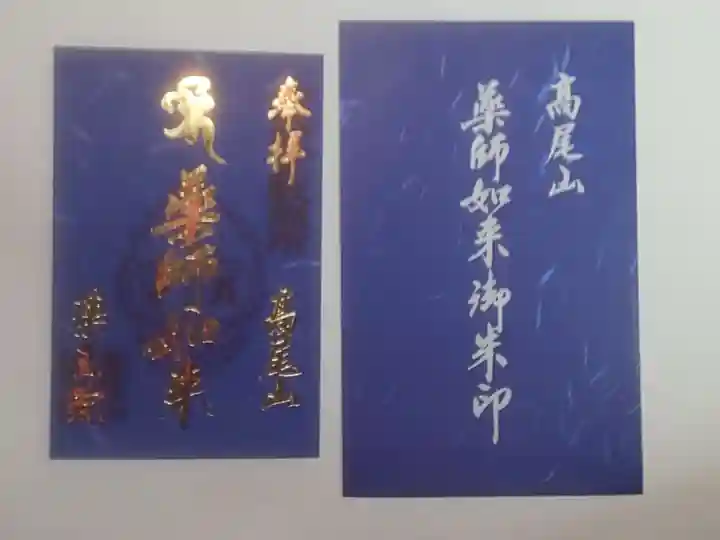 奉拝
高尾山
薬師如来
薬王院
高尾山
薬師如来御朱印